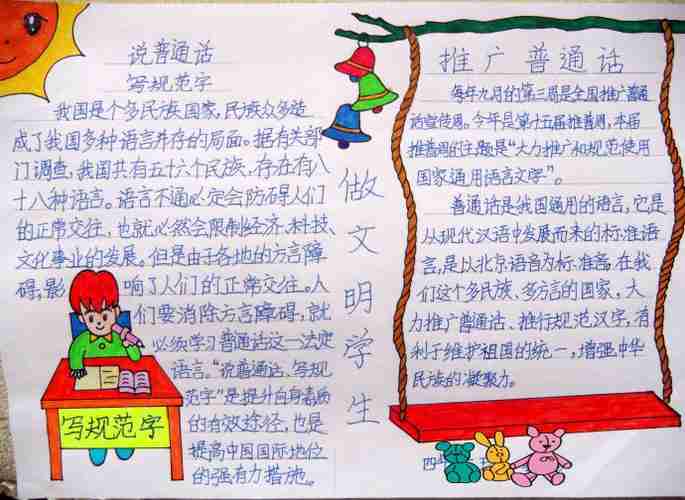 说普通话
写规范字
我国是个多民族国家,民族众多造
成了我国多种语言并存的局面。据有关部
门调查,我国共有五十六个民族,存在有八
十八种语言。语言不通必定会防碍人们
的正常交往,也就必然会限制经济、科技、
文化事业的发展。但是由于各地的方言障
碍,影响了人们的正常交往。人
们要消除方言障碍,就
必须学习普通话这一法定
语言。“说普通话、写规
范字”是提升自身素质
的有效途径,也是
提高中国国际地位
的强有力措施。
写规范字
做文明学生
推广普通话
每年九月的第三周是全国推广普通
话宣传周。今年是第十五届推普周,本届
推普周的主题是“大力推广和规范使用
国家通用语言文字”。
普通话是我国通用的语言,它是
从现代汉语中发展而来的标准语
言,是以北京语音为标准音。在我
们这个多民族、多方言的国家,大
力推广普通话、推行规范汉字,有
利于维护祖国的统一,增强中华
民族的凝聚力。
四